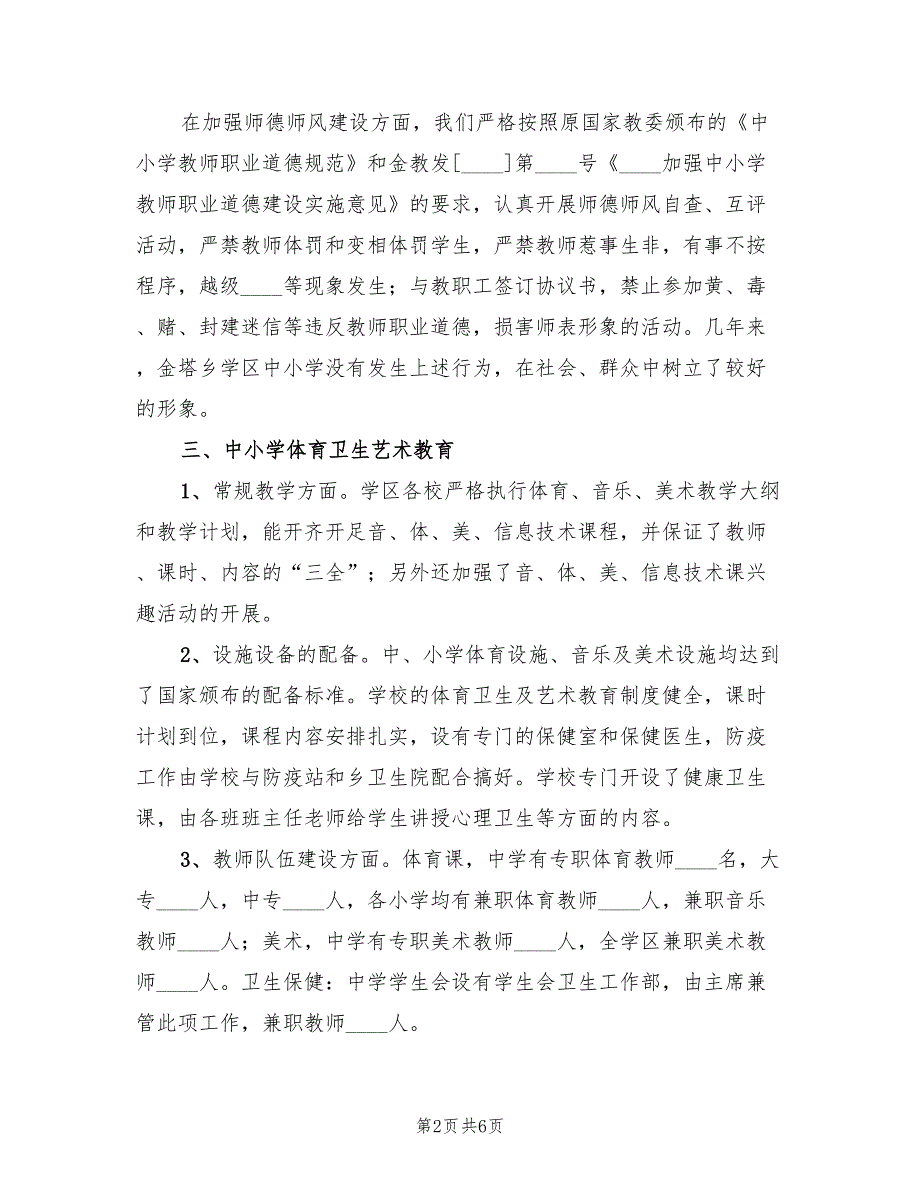 在加强师德师风建设方面，我们严格按照原国家教委颁布的《中
小学教师职业道德规范》和金教发[____]第____号《____加强中小学
教师职业道德建设实施意见》的要求，认真开展师德师风自查、互评
活动，严禁教师体罚和变相体罚学生，严禁教师惹事生非，有事不按
程序，越级____等现象发生；与教职工签订协议书，禁止参加黄、毒
、赌、封建迷信等违反教师职业道德，损害师表形象的活动。几年来
，金塔乡学区中小学没有发生上述行为，在社会、群众中树立了较好
的形象。
三、中小学体育卫生艺术教育
1、常规教学方面。学区各校严格执行体育、音乐、美术教学大纲
和教学计划，能开齐开足音、体、美、信息技术课程，并保证了教师
、课时、内容的“三全”；另外还加强了音、体、美、信息技术课兴
趣活动的开展。
2、设施设备的配备。中、小学体育设施、音乐及美术设施均达到
了国家颁布的配备标准。学校的体育卫生及艺术教育制度健全，课时
计划到位，课程内容安排扎实，设有专门的保健室和保健医生，防疫
工作由学校与防疫站和乡卫生院配合搞好。学校专门开设了健康卫生
课，由各班班主任老师给学生讲授心理卫生等方面的内容。
3、教师队伍建设方面。体育课，中学有专职体育教师____名，大
专____人，中专____人，各小学均有兼职体育教师____人，兼职音乐
教师____人；美术，中学有专职美术教师____人，全学区兼职美术教
师____人。卫生保健：中学学生会设有学生会卫生工作部，由主席兼
管此项工作，兼职教师____人。
第2页 共6页